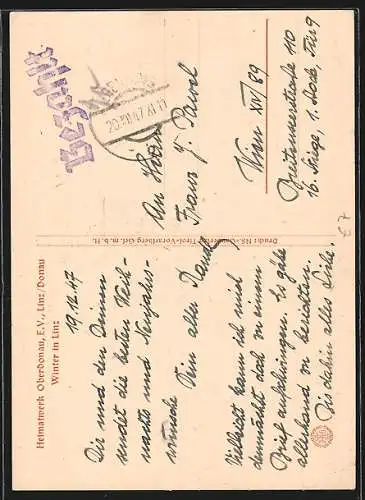 Heimatwerk Oberdonau, E.V., Linz/Donau
Winter in Linz
19.12.47
Dir und den Deinen
sendet die besten Weih-
nachts und Neujahrs-
wünsche
Dein alter
Vielleicht kann ich mich
demnächst doch zu einem
Brief aufschwingen. Es gäbe
allerhand zu berichten.
Bis dahin alles Liebe.
Druck: NS.-Gauverlag Tirol-Vorarlberg Ges. m. b. H.
Bezahlt
20.XII.47
An Herrn
Franz J.
Wien XIV/89
Breitenseerstraße 110
16. Stiege, 1. Stock, Tür 9